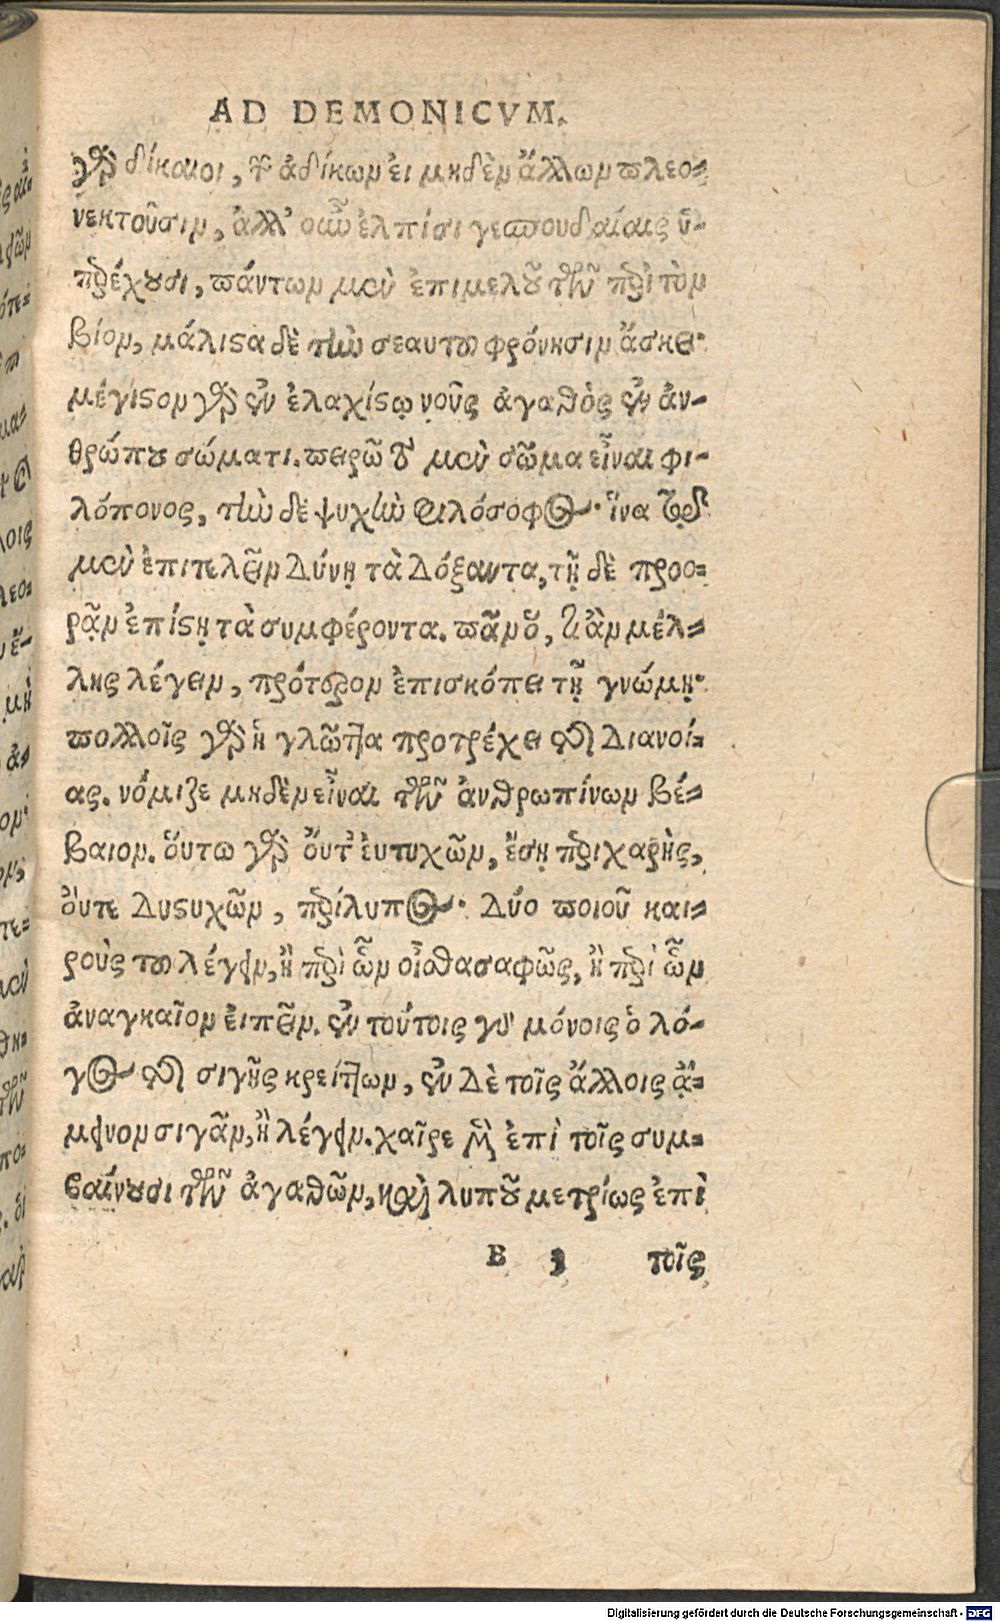 AD DEMONICVM.
γὰρ δίκαιοι, τῶν ἀδίκων εἰ μηδὲν ἄλλων πλεο-
νεκτοῦσιν, ἀλλ' οὖν ἐλπίσι γε σπουδαίαις ὑ-
περέχουσι, πάντων μὲν ἐπιμελοῦ τῶν περὶ τὸν
βίον, μάλιστα δὲ τὴν σεαυτοῦ φρόνησιν ἄσκει·
μέγιστον γὰρ ἐν ἐλαχίστῳ νοῦς ἀγαθὸς ἐν ἀν-
θρώπου σώματι. πειρῶ τῷ μὲν σῶμα εἶναι φι-
λόπονος, τὴν δὲ ψυχὴν φιλόσοφος· ἵνα τῷ
μὲν ἐπιτελεῖν δύνῃ τὰ δόξαντα, τῇ δὲ προο-
ρᾷν ἐπίστῃ τὰ συμφέροντα. πᾶν ὅ, τι ἂν μέλ-
λῃς λέγειν, πρότερον ἐπισκόπει τῇ γνώμῃ·
πολλοῖς γὰρ ἡ γλῶττα προτρέχει τῆς διανοί-
ας. νόμιζε μηδὲν εἶναι τῶν ἀνθρωπίνων βέ-
βαιον. ὅυτω γὰρ ὄυτ' ἐυτυχῶν, ἔσῃ περιχαρὴς,
ὄυτε δυστυχῶν, περίλυπος. δύο ποιοῦ και-
ροὺς τοῦ λέγειν, ἢ περὶ ὧν οἶσθα σαφῶς, ἢ περὶ ὧν
ἀναγκαῖον ἐιπεῖν. ἐν τούτοις γὰρ μόνοις ὁ λό-
γος τῆς σιγῆς κρείττων, ἐν δὲ τοῖς ἄλλοις ἄ-
μεινον σιγᾶν, ἢ λέγειν. χαῖρε μὲν ἐπὶ τοῖς συμ-
βαίνουσι τῶν ἀγαθῶν, καὶ λυποῦ μετρίως ἐπὶ
B 3 τοῖς
Digitalisierung gefördert durch die Deutsche Forschungsgemeinschaft - DFG